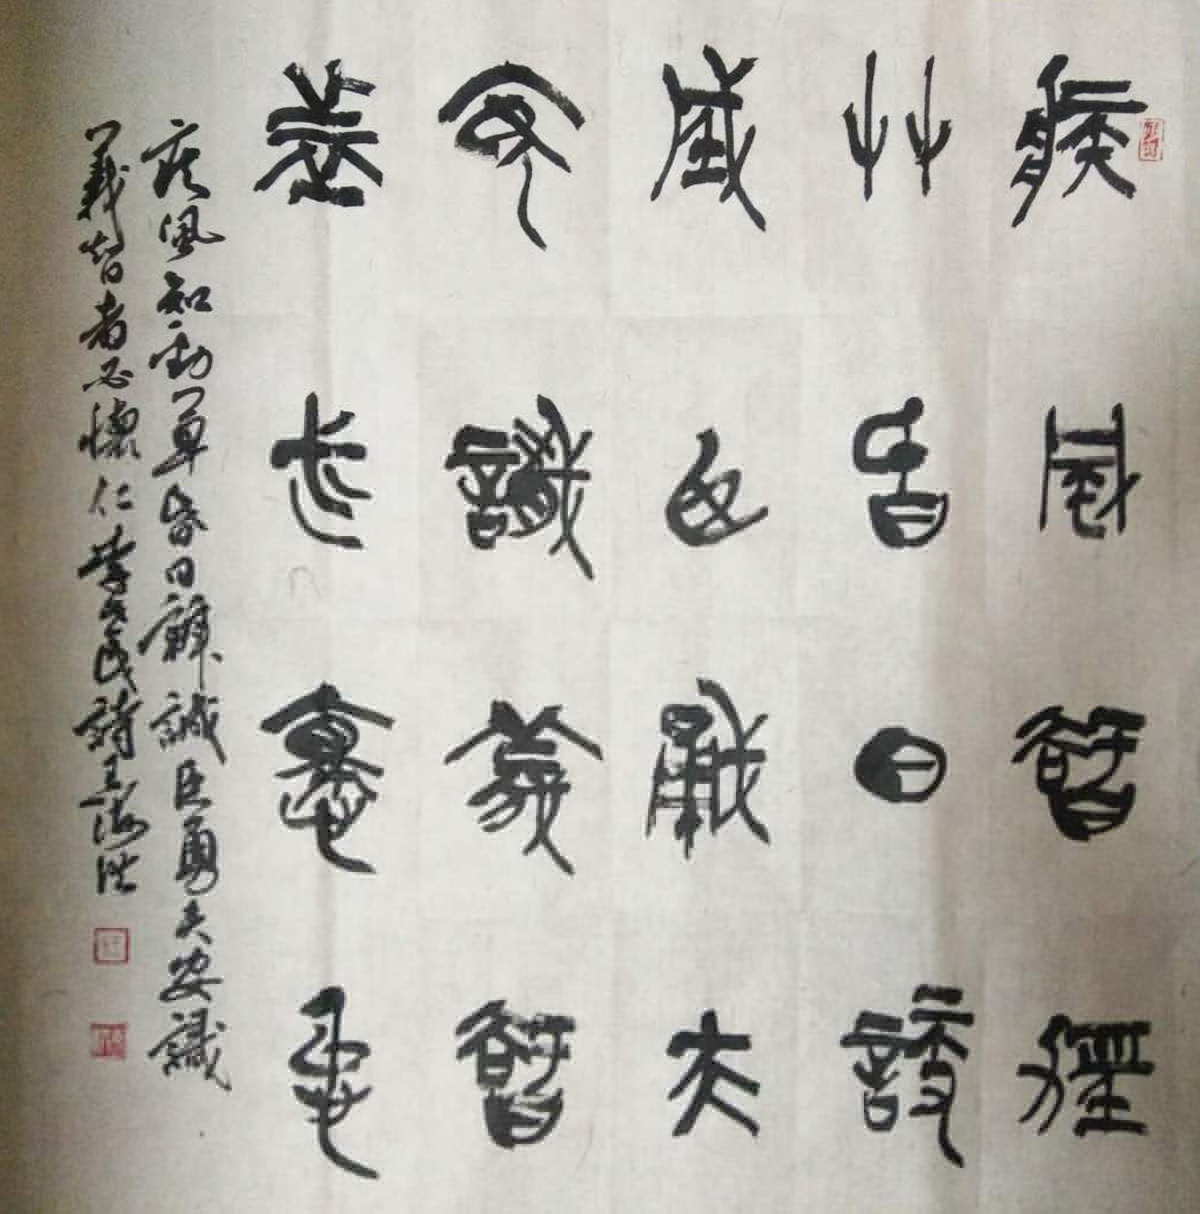 疾風知勁
艸昏日辨
誠臣勇夫
安識義智
者必懷仁
疾風知勁草昏日辨誠臣勇夫安識
義智者必懷仁李世民詩王海洪